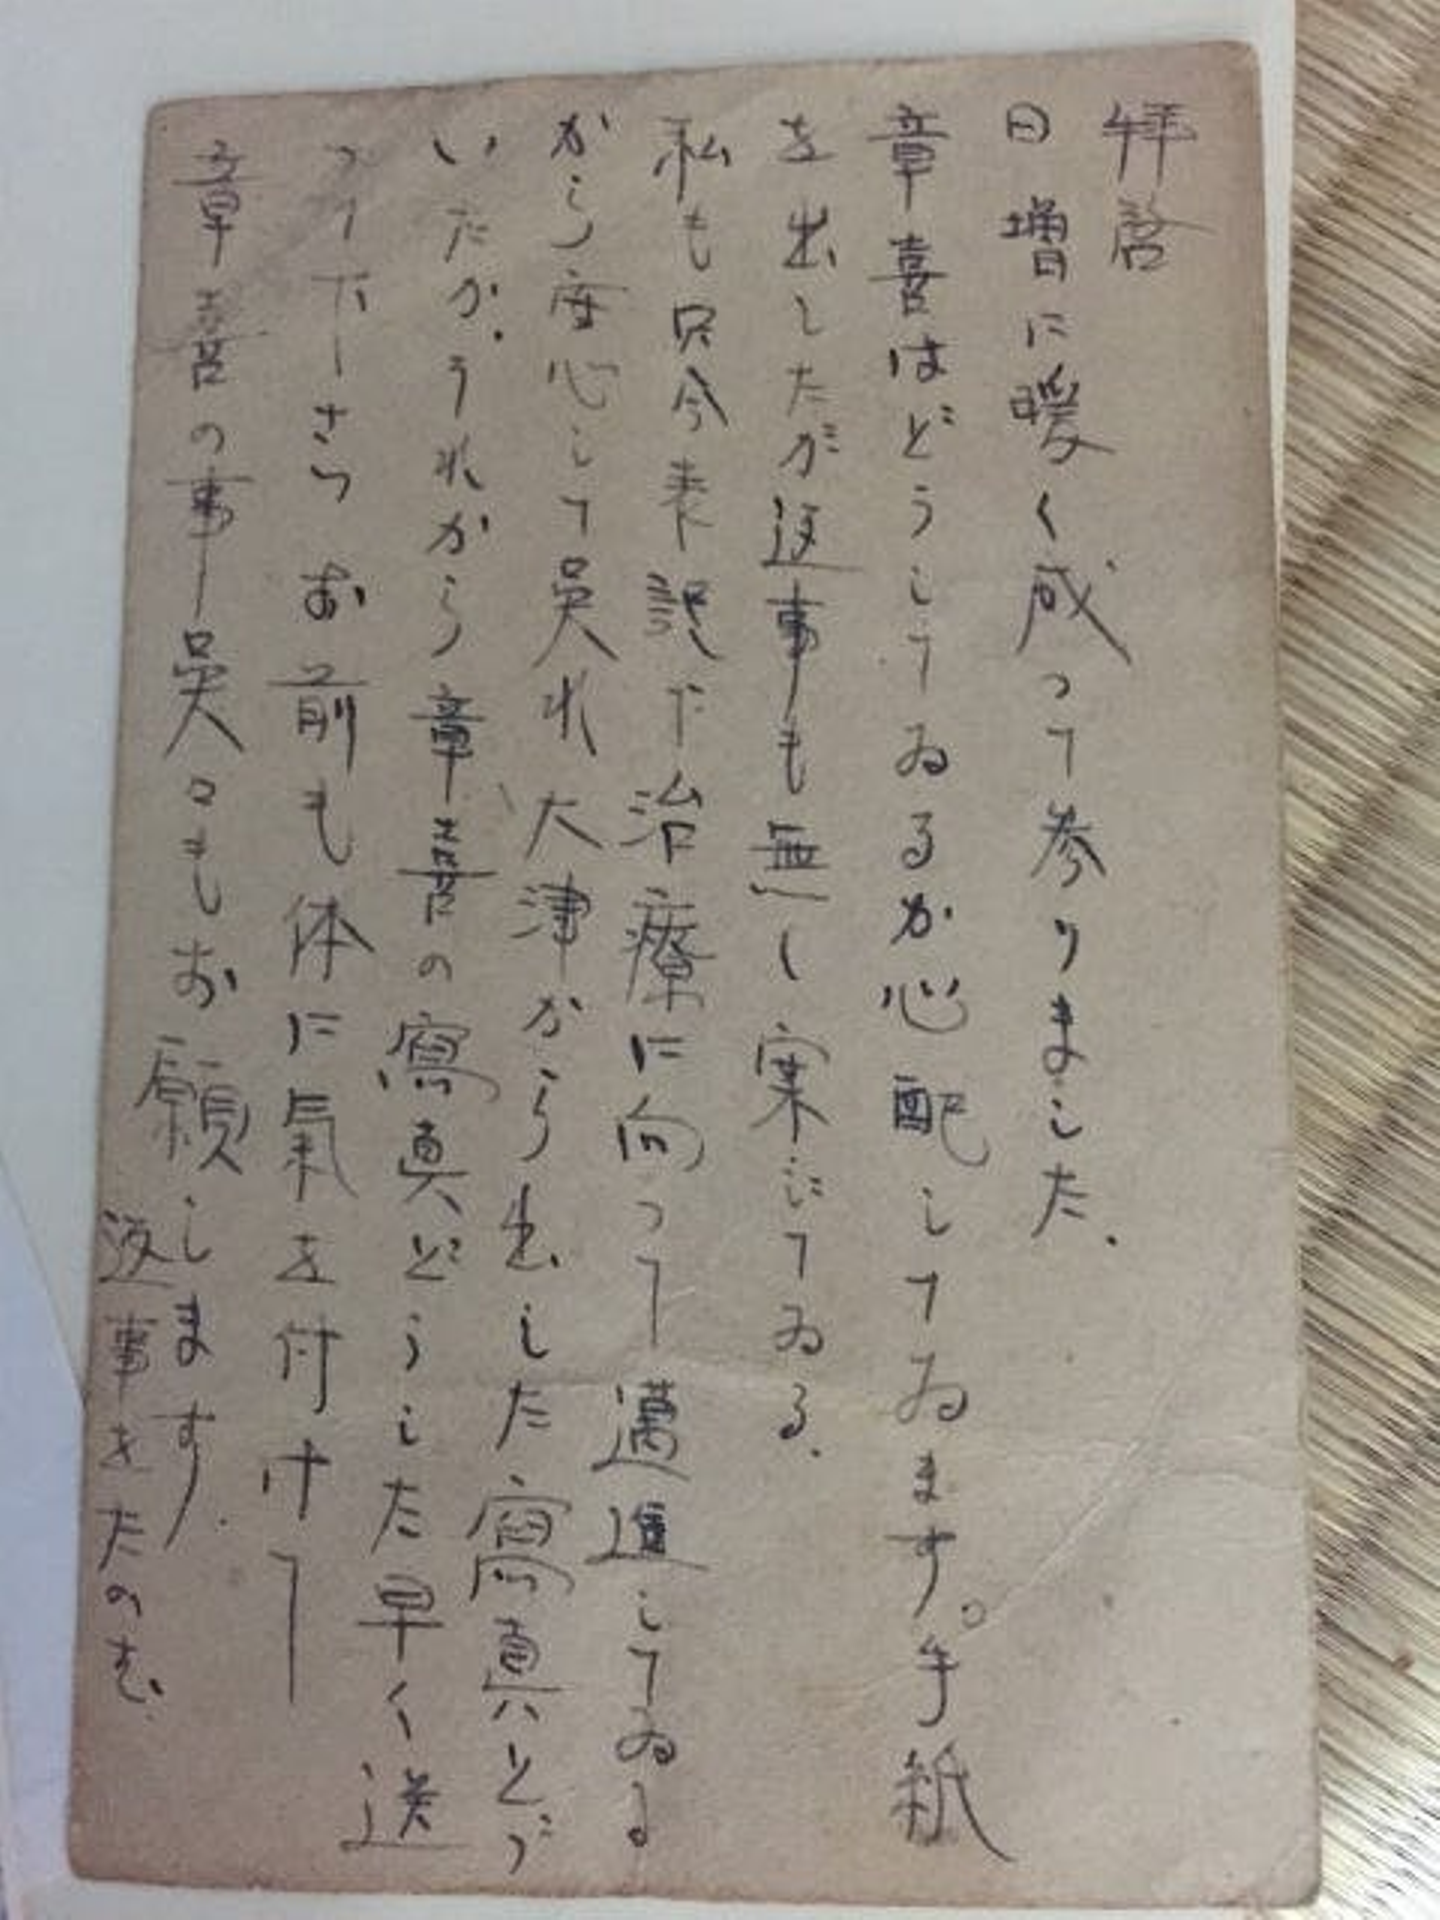 拝啓
日増に暖く成って参りました.
章喜はどうしてゐるか心配してゐます。手紙
を出したが返事も無し案にてゐる.
私も只今表記た治療に向って邁進してゐる
から安心して呉れ大津から出した寫真とゞ
いたか.うれから章喜の寫真どうした早く送
って下さつお前も体に氣を付けー
章喜の事呉々もお願します.
返事をたのむ.